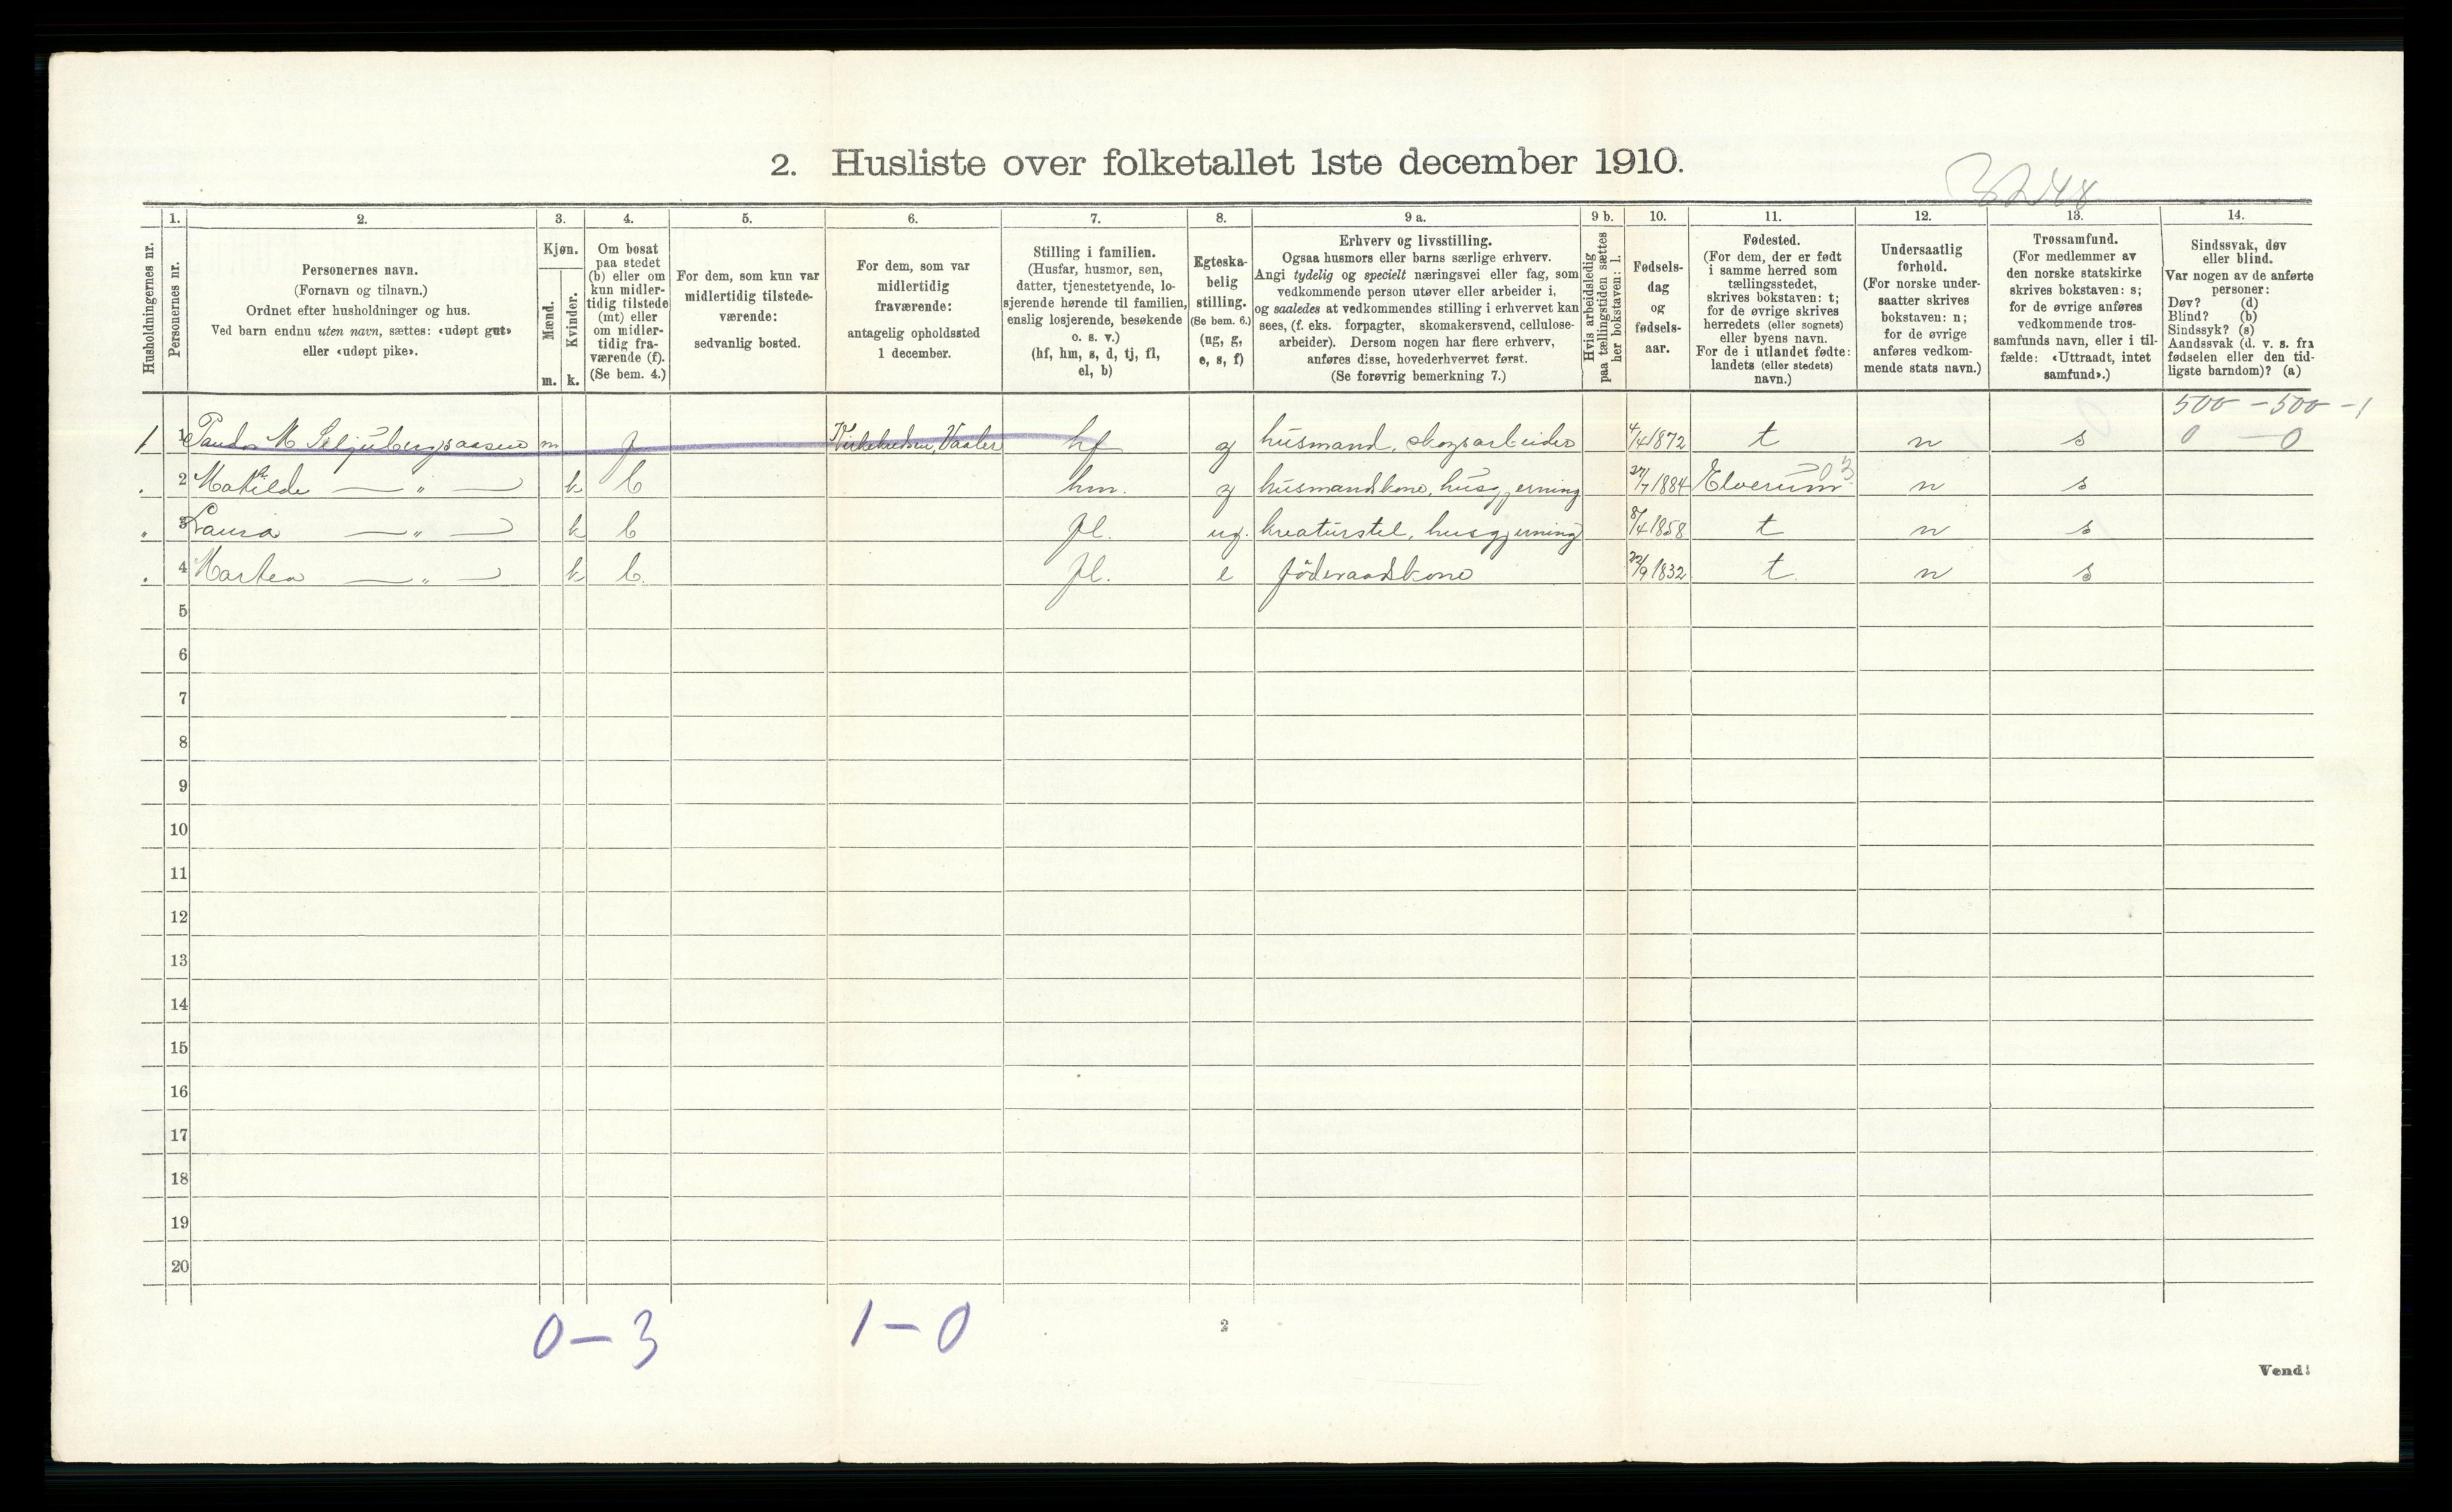 2. Husliste over folketallet 1ste december 1910.
3248
1. 2. 3. 4. 5. 6. 7. 8. 9 a. 9 b. 10. 11. 12. 13. 14.
Husholdningernes nr.
Personernes nr.
Personernes navn.
(Fornavn og tilnavn.)
Ordnet efter husholdninger og hus.
Ved barn endnu uten navn, sættes: «udøpt gut»
eller «udøpt pike».
Kjøn.
Mænd.
Kvinder.
m. k.
Om bosat
paa stedet
(b) eller om
kun midler-
tidig tilstede
(mt) eller
om midler-
tidig fra-
værende (f).
(Se bem. 4.)
For dem, som kun var
midlertidig tilstede-
værende:
sedvanlig bosted.
For dem, som var
midlertidig
fraværende:
antagelig opholdssted
1 december.
Stilling i familien.
(Husfar, husmor, søn,
datter, tjenestetyende, lo-
sjerende hørende til familien,
enslig losjerende, besøkende
o. s. v.)
(hf, hm, s, d, tj, fl,
el, b)
Egteska-
belig
stilling.
(Se bem. 6.)
(ug, g,
e, s, f)
Erhverv og livsstilling.
Ogsaa husmors eller barns særlige erhverv.
Angi tydelig og specielt næringsvei eller fag, som
vedkommende person utøver eller arbeider i,
og saaledes at vedkommendes stilling i erhvervet kan
sees, (f. eks. forpagter, skomakersvend, cellulose-
arbeider). Dersom nogen har flere erhverv,
anføres disse, hovederhvervet først.
(Se forøvrig bemerkning 7.)
Hvis arbeidsledig
paa tællingstiden sættes
her bokstaven: l.
Fødsels-
dag
og
fødsels-
aar.
Fødested.
(For dem, der er født
i samme herred som
tællingsstedet,
skrives bokstaven: t;
for de øvrige skrives
herredets (eller sognets)
eller byens navn.
For de i utlandet fødte:
landets (eller stedets)
navn.)
Undersaatlig
forhold.
(For norske under-
saatter skrives
bokstaven: n;
for de øvrige
anføres vedkom-
mende stats navn.)
Trossamfund.
(For medlemmer av
den norske statskirke
skrives bokstaven: s;
for de øvrige anføres
vedkommende tros-
samfunds navn, eller i til-
fælde: «Uttraadt, intet
samfund».)
Sindssvak, døv
eller blind.
Var nogen av de anførte
personer:
Døv? (d)
Blind? (b)
Sindssyk? (s)
Aandssvak (d. v. s. fra
fødselen eller den tid-
ligste barndom)? (a)
500 - 500 - 1
1 1 M m f Kirkekredsen, Vaaler hf g husmand, skogsarbeider 4/4 1872 t n s 0 - 0
2 Matilde — „ — k b hm. g husmandskone, husgjerning 27/7 1884 Elverum 03 n s
3 Laura — „ — k b fl. ug. kreaturstel, husgjerning 8/4 1858 t n s
4 Martea — „ — k b. fl. e föderaadskone 22/9 1832 t. n s
5
6
7
8
9
10
11
12
13
14
15
16
17
18
19
20
0 - 3 1 - 0
2
Vend!